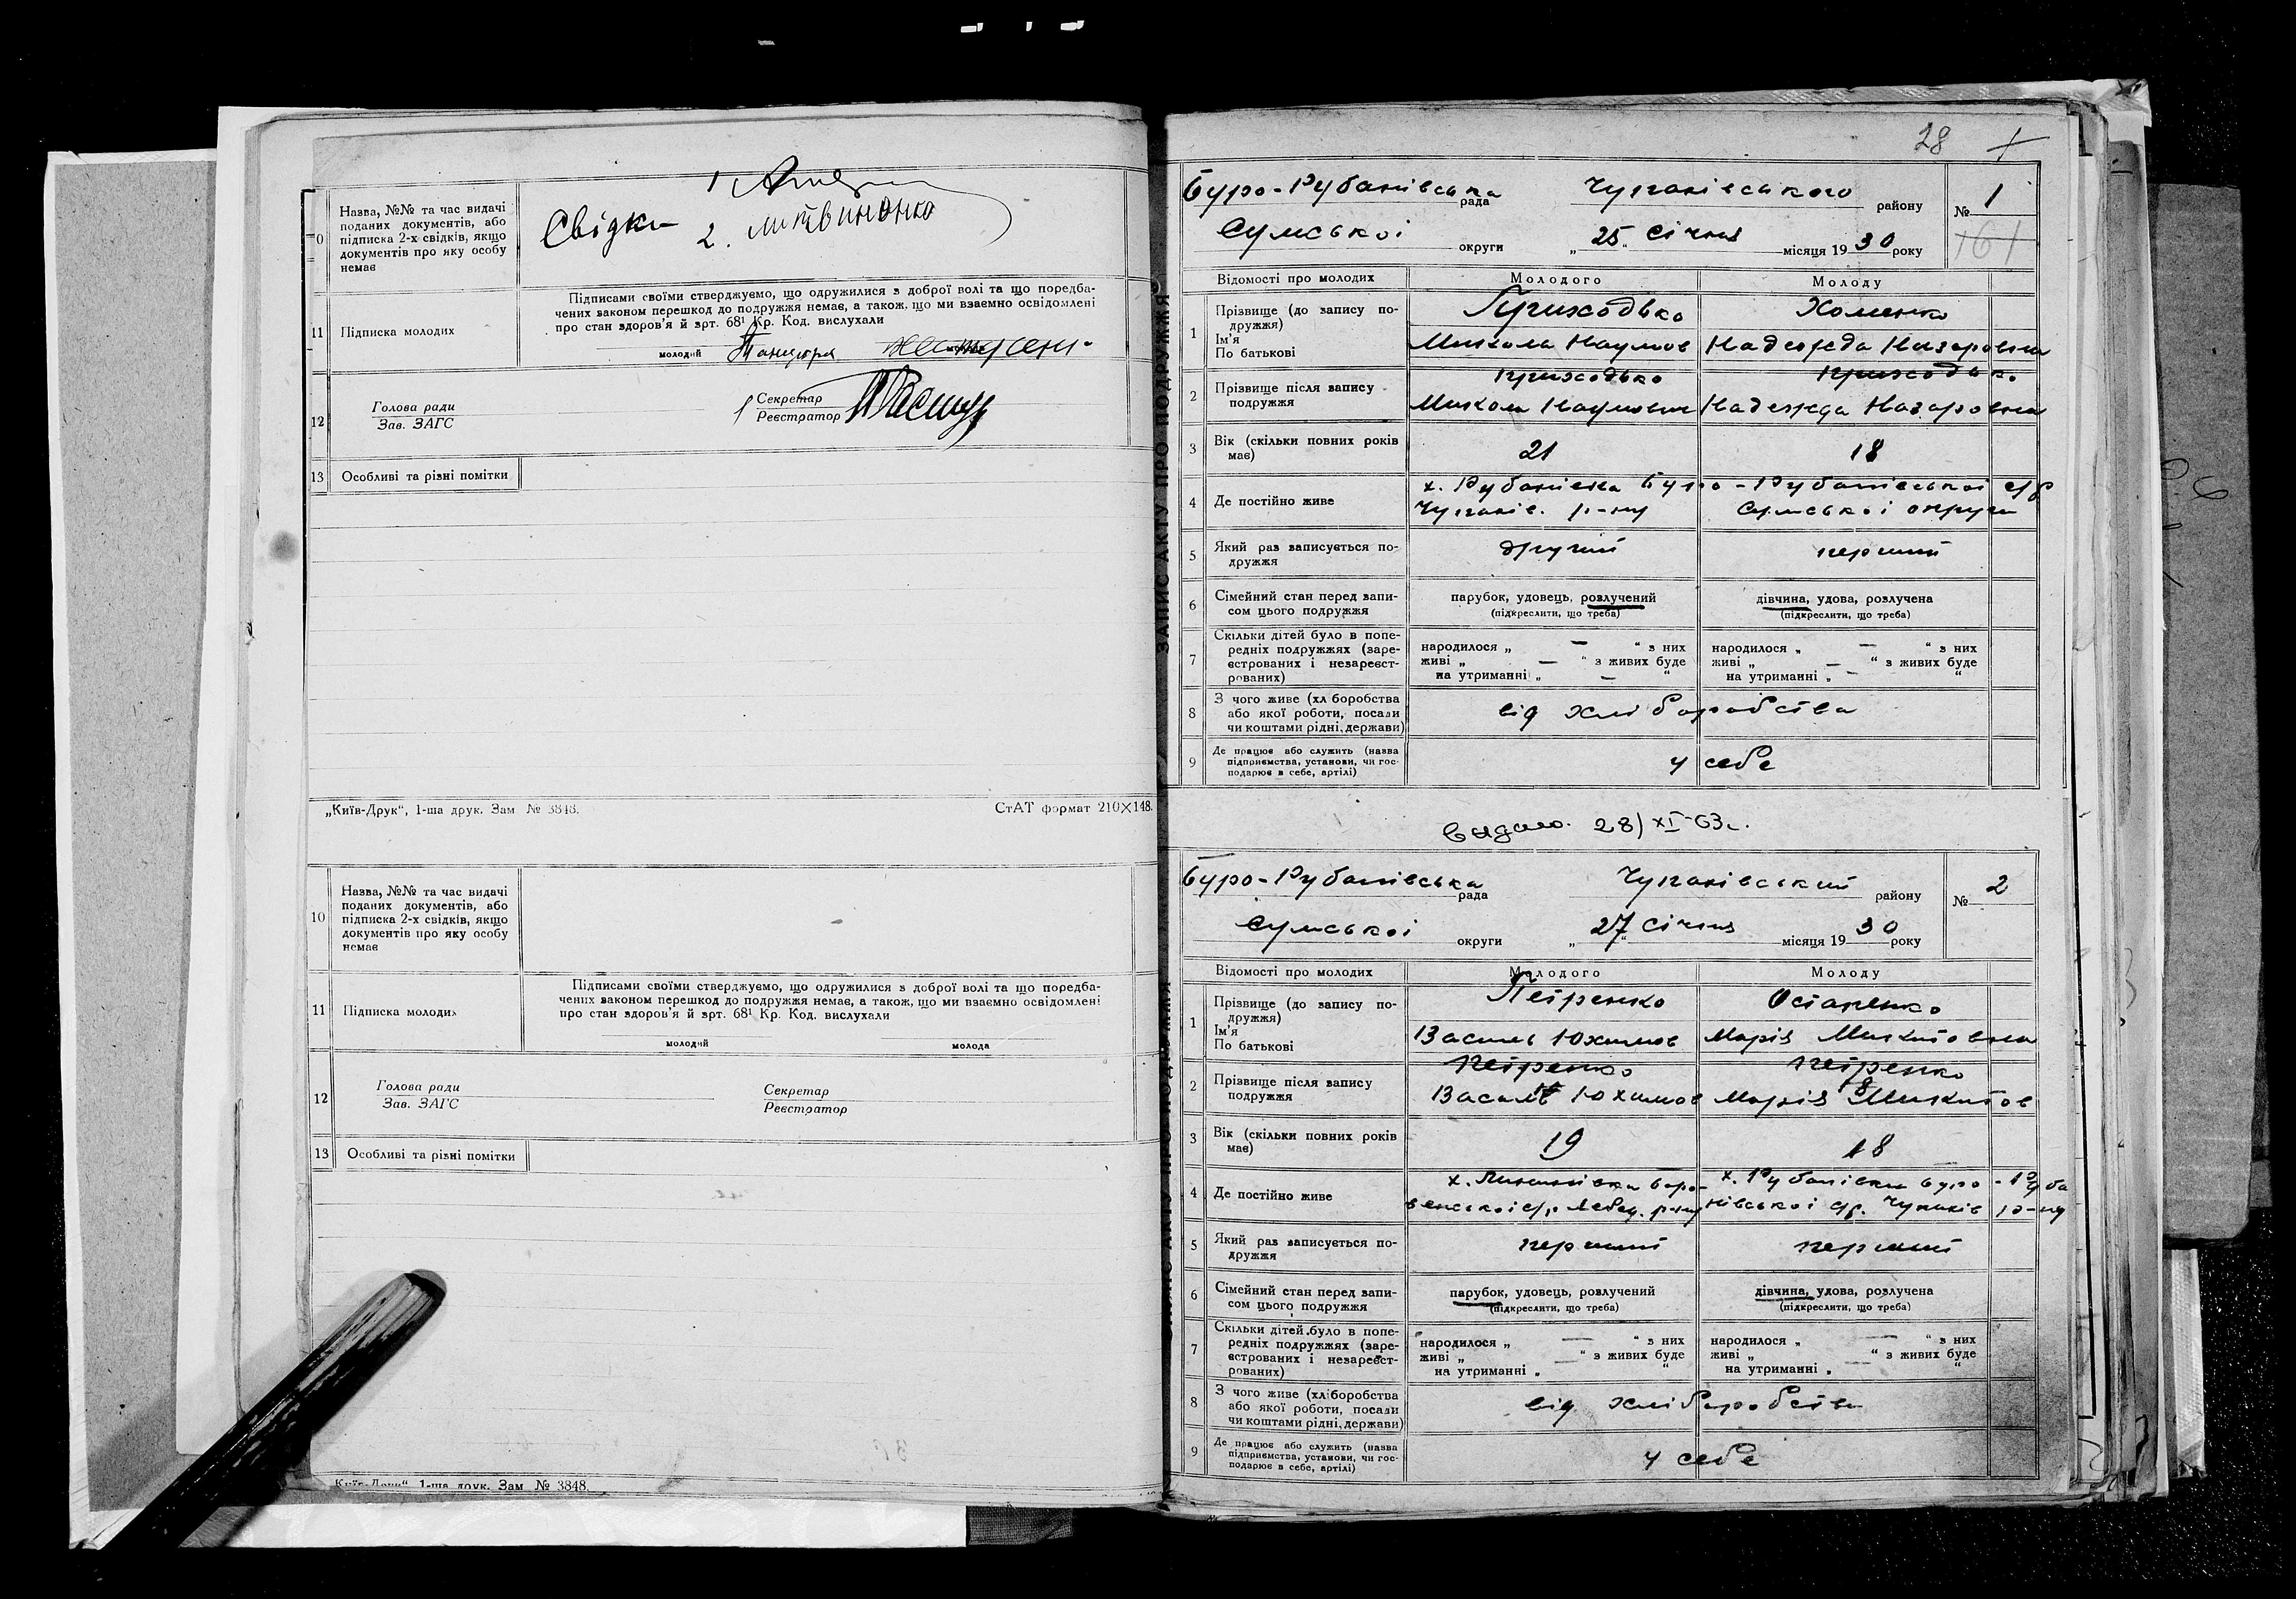 0 Назва, №№ та час видачі
поданих документів, або
підписка 2-х свідків, якщо
документів про яку особу
немає
Свідки 1
2. Литвиненко
11 Підписка молодих
Підписами своїми стверджуємо, що одружилися з доброї волі та що поредба-
чених законом перешкод до подружжя немає, а також, що ми взаємно освідомлені
про стан здоров'я й арт. 68¹ Кр. Код. вислухали
молодий
12 Голова ради
Зав. ЗАГС
Секретар
Реєстратор
13 Особливі та різні помітки
„Київ-Друк“, 1-ша друк. Зам № 3848. СтАТ формат 210×148.
10 Назва, №№ та час видачі
поданих документів, або
підписка 2-х свідків, якщо
документів про яку особу
немає
11 Підписка молодих
Підписами своїми стверджуємо, що одружилися з доброї волі та що поредба-
чених законом перешкод до подружжя немає, а також, що ми взаємно освідомлені
про стан здоров'я й арт. 68¹ Кр. Код. вислухали
молодий молода
12 Голова ради
Зав. ЗАГС
Секретар
Реєстратор
13 Особливі та різні помітки
Київ-Друк“ 1-ша друк. Зам № 3848.
ЗАПИС АКТУ ПРО ПОДРУЖЖЯ
28
Буро-Рубанівська рада Чупахівського району № 1
Сумської округи „25“ Січня місяця 1930 року
161
Відомості про молодих Молодого Молоду
1 Прізвище (до запису по-
дружжя)
Ім'я
По батькові
Приходько Хоменко
Микола Наумов Надежда Назаровна
2 Прізвище після запису
подружжя
приходько приходько
Микола Наумович Надежда Назаровна
3 Вік (скільки повних років
має)
21 18
4 Де постійно живе
х. Рубанівка Буро-Рубанівської с/р
Чупахів. р-ну Сумської округи
5 Який раз записується по-
дружжя
другий перший
6 Сімейний стан перед запи-
сом цього подружжя
парубок, удовець, розлучений дівчина, удова, розлучена
(підкреслити, що треба) (підкреслити, що треба)
7 Скільки дітей було в попе-
редніх подружжях (заре-
єстрованих і незареєст-
рованих)
народилося „ — “ з них народилося „ — “ з них
живі „ — “ з живих буде живі „ — “ з живих буде
на утриманні „ — “ на утриманні „ — “
8 З чого живе (хліборобства
або якої роботи, посади
чи коштами рідні, держави)
від хліборобства
9 Де працює або служить (назва
підприємства, установи, чи гос-
подарює в себе, артілі)
у себе
28) XI-63г.
Буро-Рубанівська рада Чупахівський району № 2
Сумської округи „27“ Січня місяця 1930 року
Відомості про молодих Молодого Молоду
1 Прізвище (до запису по-
дружжя)
Ім'я
По батькові
Петренко Остапенко
Василь Юхимов Марія Микитовна
2 Прізвище після запису
подружжя
Петренко Петренко
Василь Юхимов Марія Микитов
3 Вік (скільки повних років
має)
19 18
4 Де постійно живе
х. х. Рубанівки Буро-Руба
с/р Лебед. р-ну нівської с/р. Чупахів р-ну
5 Який раз записується по-
дружжя
перший перший
6 Сімейний стан перед запи-
сом цього подружжя
парубок, удовець, розлучений дівчина, удова, розлучена
(підкреслити, що треба) (підкреслити, що треба)
7 Скільки дітей було в попе-
редніх подружжях (заре-
єстрованих і незареєст-
рованих)
народилося „ — “ з них народилося „ — “ з них
живі „ — “ з живих буде живі „ — “ з живих буде
на утриманні „ “ на утриманні „ “
8 З чого живе (хліборобства
або якої роботи, посади
чи коштами рідні, держави)
від хліборобства
9 Де працює або служить (назва
підприємства, установи, чи гос-
подарює в себе, артілі)
у себе